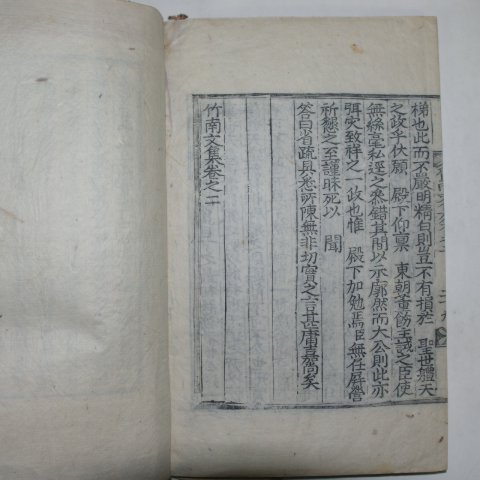 梯也此而不嚴明精白則豈不有損於　聖世軆天
之政乎伏願　殿下仰禀　東朝董飭至誠之臣使
無絲毫私逕之叅錯其間以示廓然而大公則此亦
弭灾致祥之一政也惟　殿下加勉焉臣無任屛營
祈懇之至謹昧死以　聞
答曰省疏具悉所陳無非切實之言甚庸嘉尙矣
竹南文集卷之二